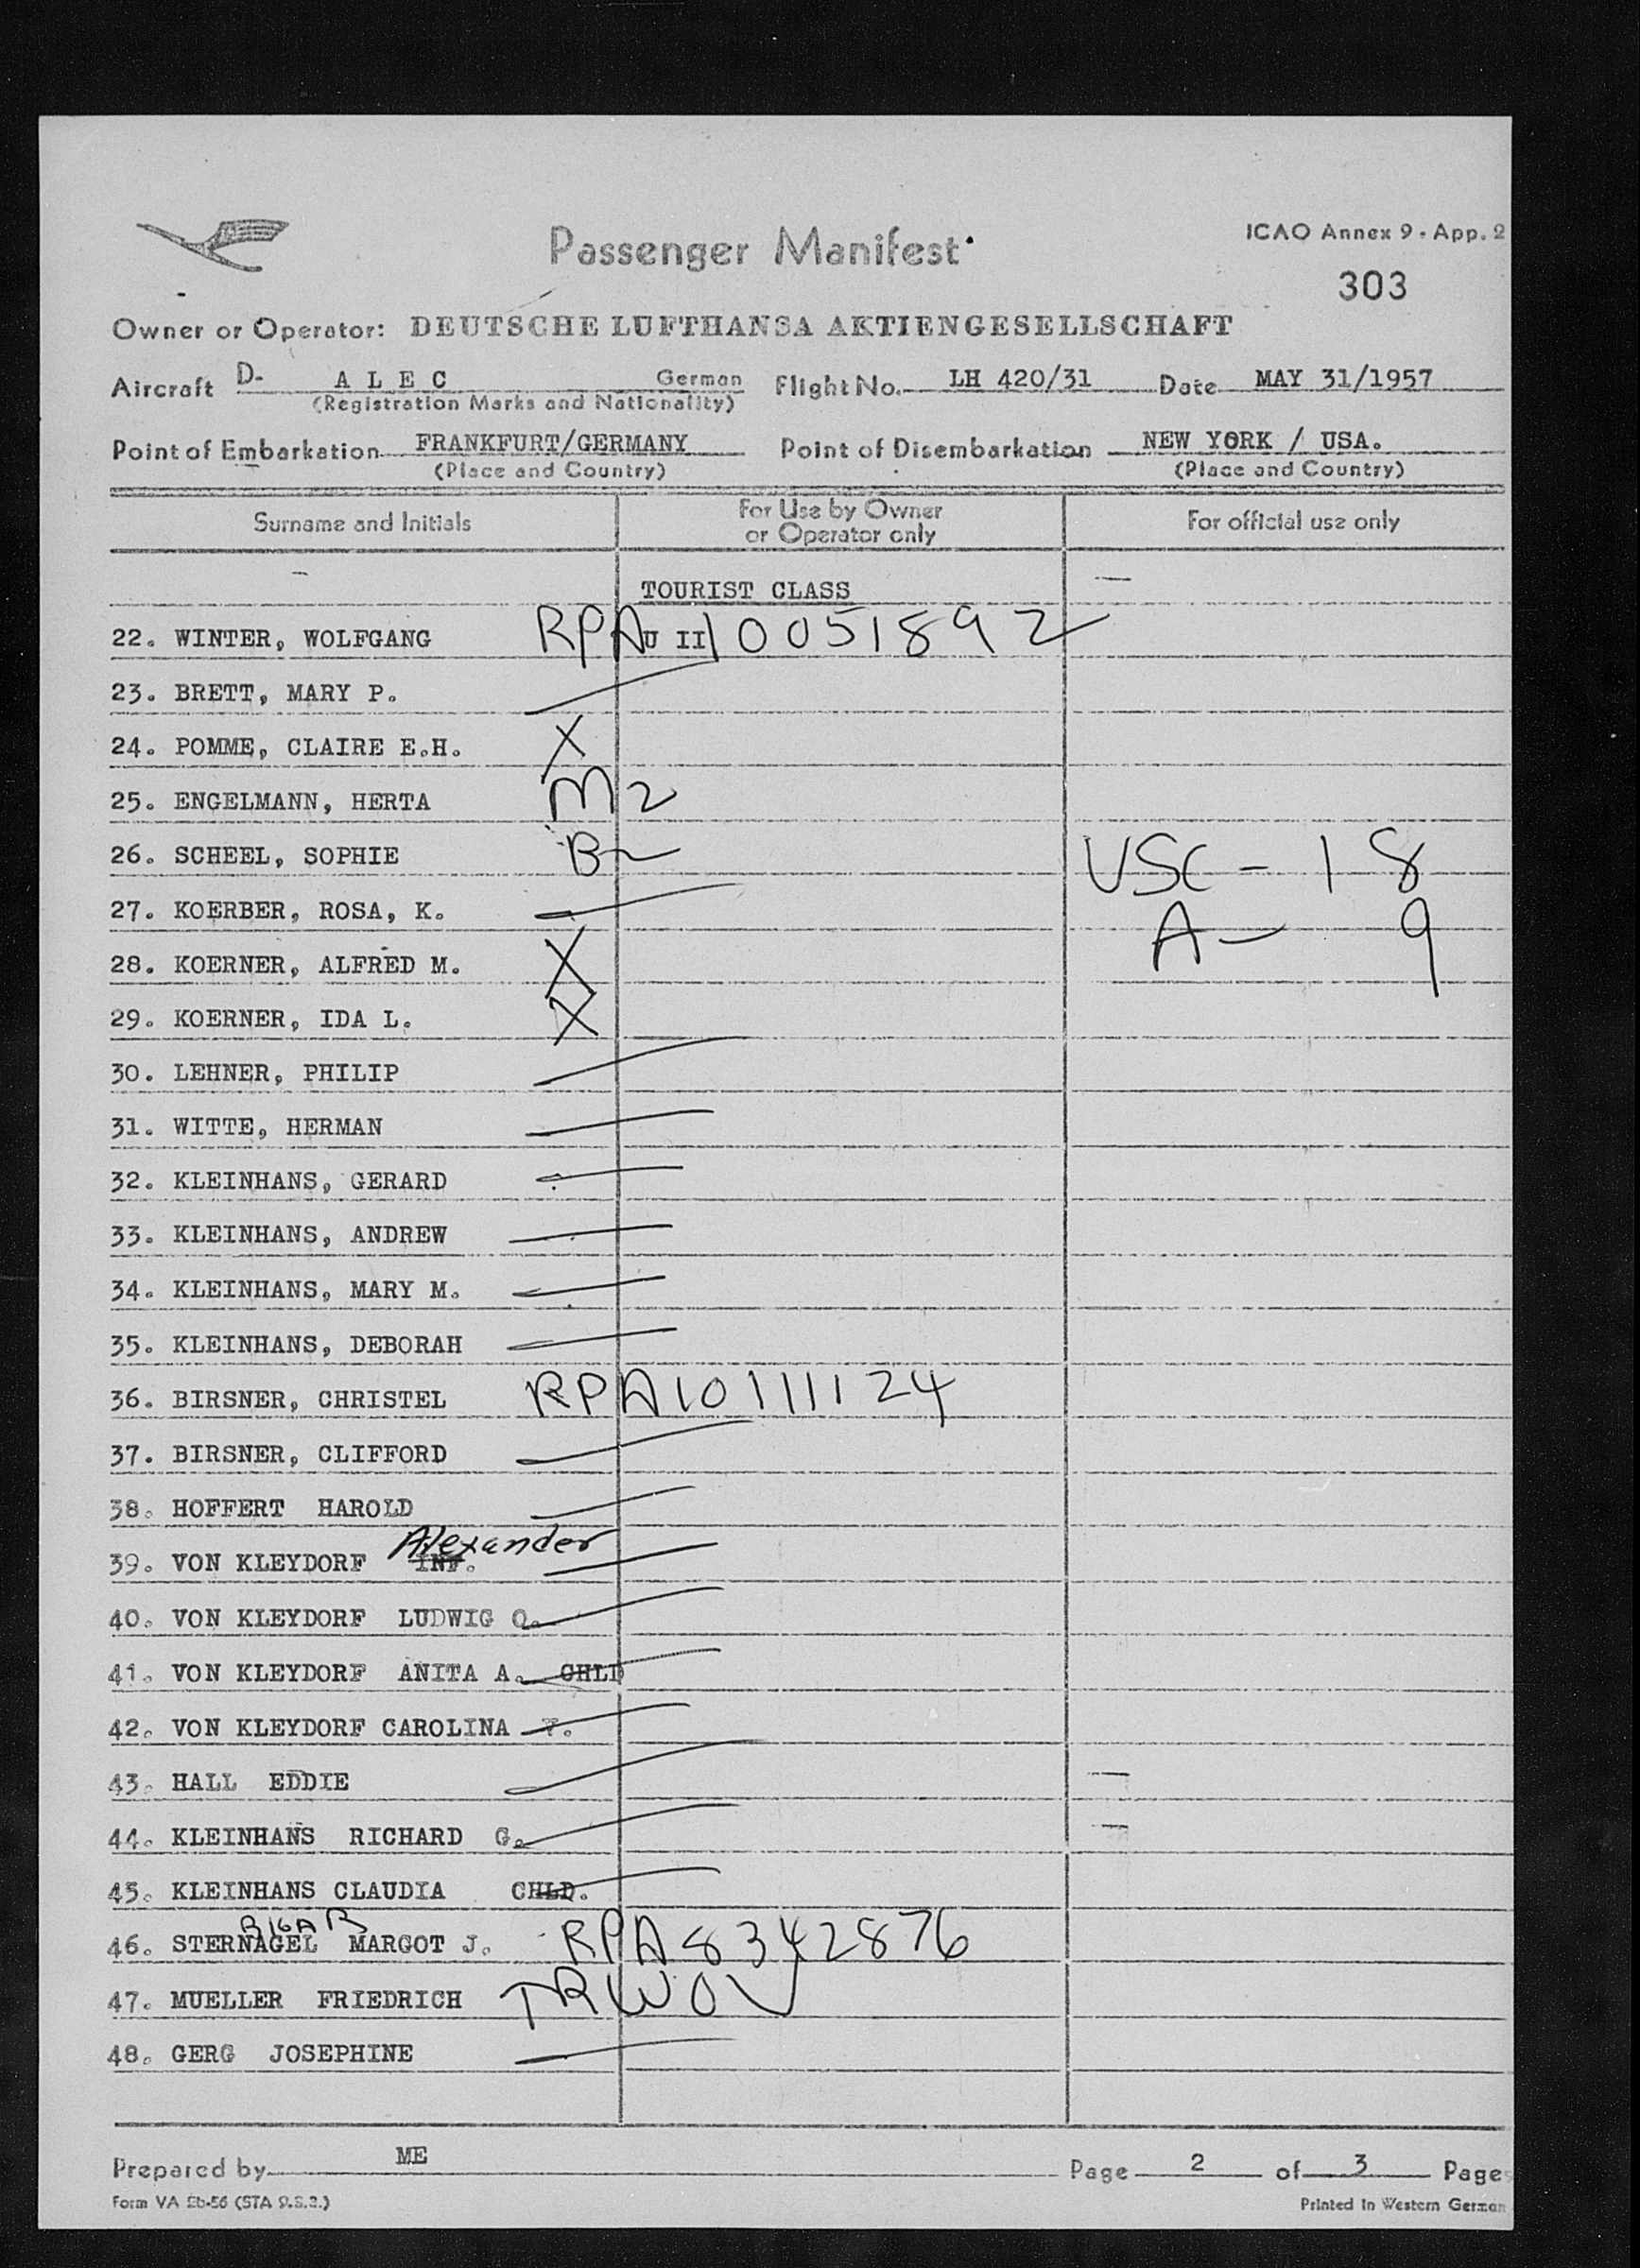 Passenger Manifest
ICAO Annex 9 - App. 2
303
Owner or Operator: DEUTSCHE LUFTHANSA AKTIENGESELLSCHAFT
Aircraft D- A L E C German Flight No. LH 420/31 Date MAY 31/1957
(Registration Marks and Nationality)
Point of Embarkation FRANKFURT/GERMANY Point of Disembarkation NEW YORK / USA.
(Place and Country) (Place and Country)
Surname and Initials For Use by Owner or Operator only For official use only
TOURIST CLASS
22. WINTER, WOLFGANG RPA U II 10051892
23. BRETT, MARY P.
24. POMME, CLAIRE E.H. X
25. ENGELMANN, HERTA M2
26. SCHEEL, SOPHIE B2 USC - 18
27. KOERBER, ROSA, K. A - 9
28. KOERNER, ALFRED M. X
29. KOERNER, IDA L. X
30. LEHNER, PHILIP
31. WITTE, HERMAN
32. KLEINHANS, GERARD
33. KLEINHANS, ANDREW
34. KLEINHANS, MARY M.
35. KLEINHANS, DEBORAH
36. BIRSNER, CHRISTEL RPA 10111124
37. BIRSNER, CLIFFORD
38. HOFFERT HAROLD
39. VON KLEYDORF INF. Alexander
40. VON KLEYDORF LUDWIG O.
41. VON KLEYDORF ANITA A. CHLD
42. VON KLEYDORF CAROLINA T.
43. HALL EDDIE
44. KLEINHANS RICHARD G.
45. KLEINHANS CLAUDIA CHLD.
46. STERNAGEL MARGOT J. RPA 8342876
47. MUELLER FRIEDRICH TRWOV
48. GERG JOSEPHINE
Prepared by ME Page 2 of 3 Page
Form VA Eb-56 (STA 9.S.2.) Printed in Western German